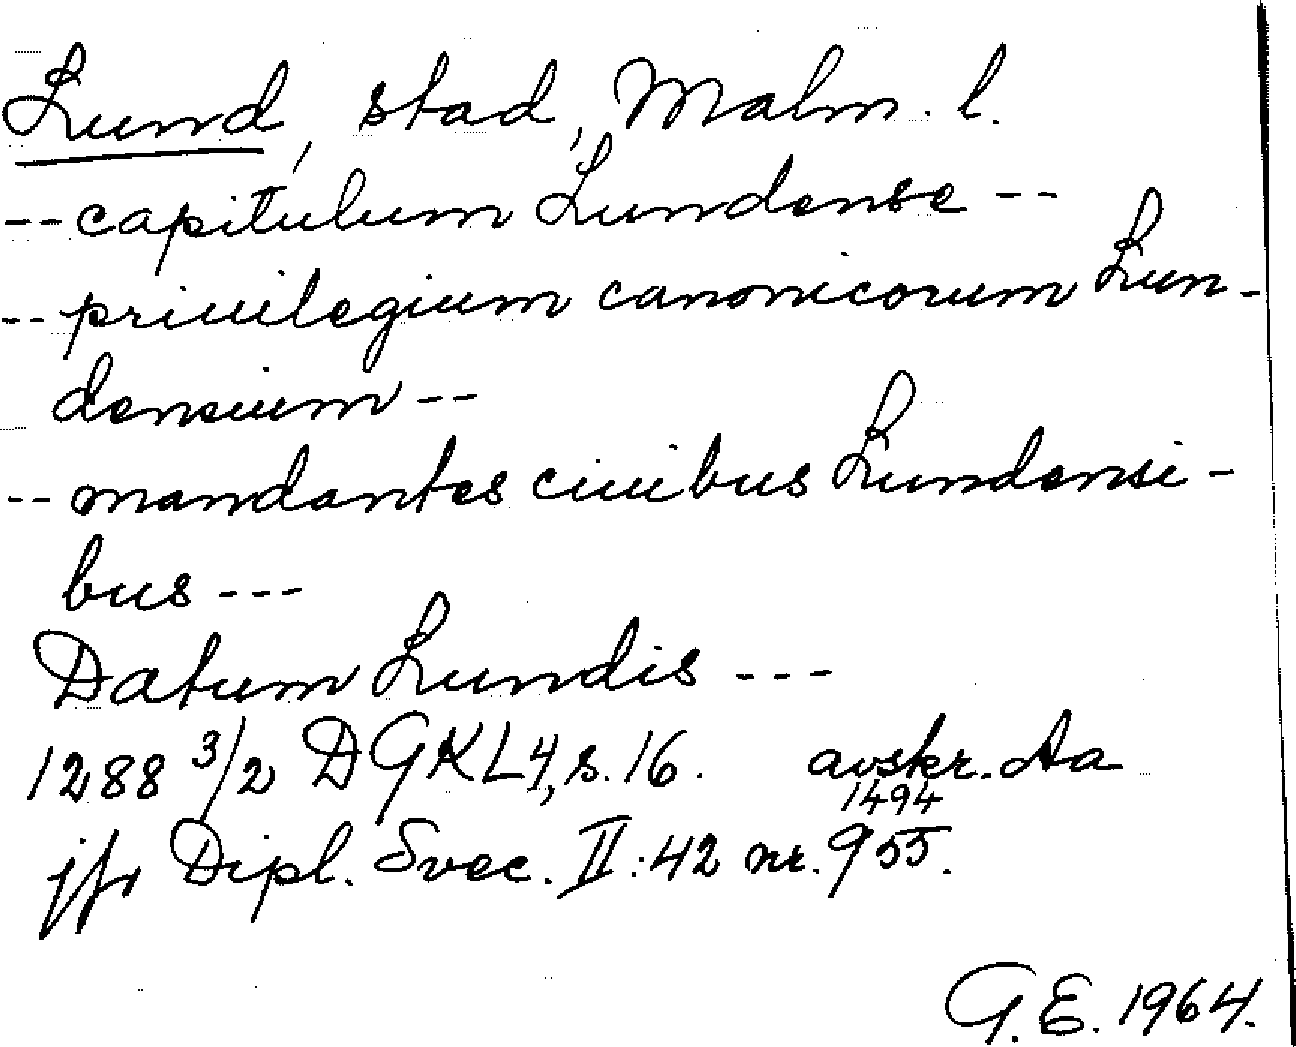 Lund, stad, Malm. l.
-- capitulum Lundense --
-- priuilegium canonicorum Lun-
densium --
-- mandantes ciuibus Lundensi-
bus ---
Datum Lundis ---
1288 3/2 DGKL4, s. 16. avskr. Aa
1494
jfr Dipl. Svec. II:42 nr. 955.
G. E. 1964.